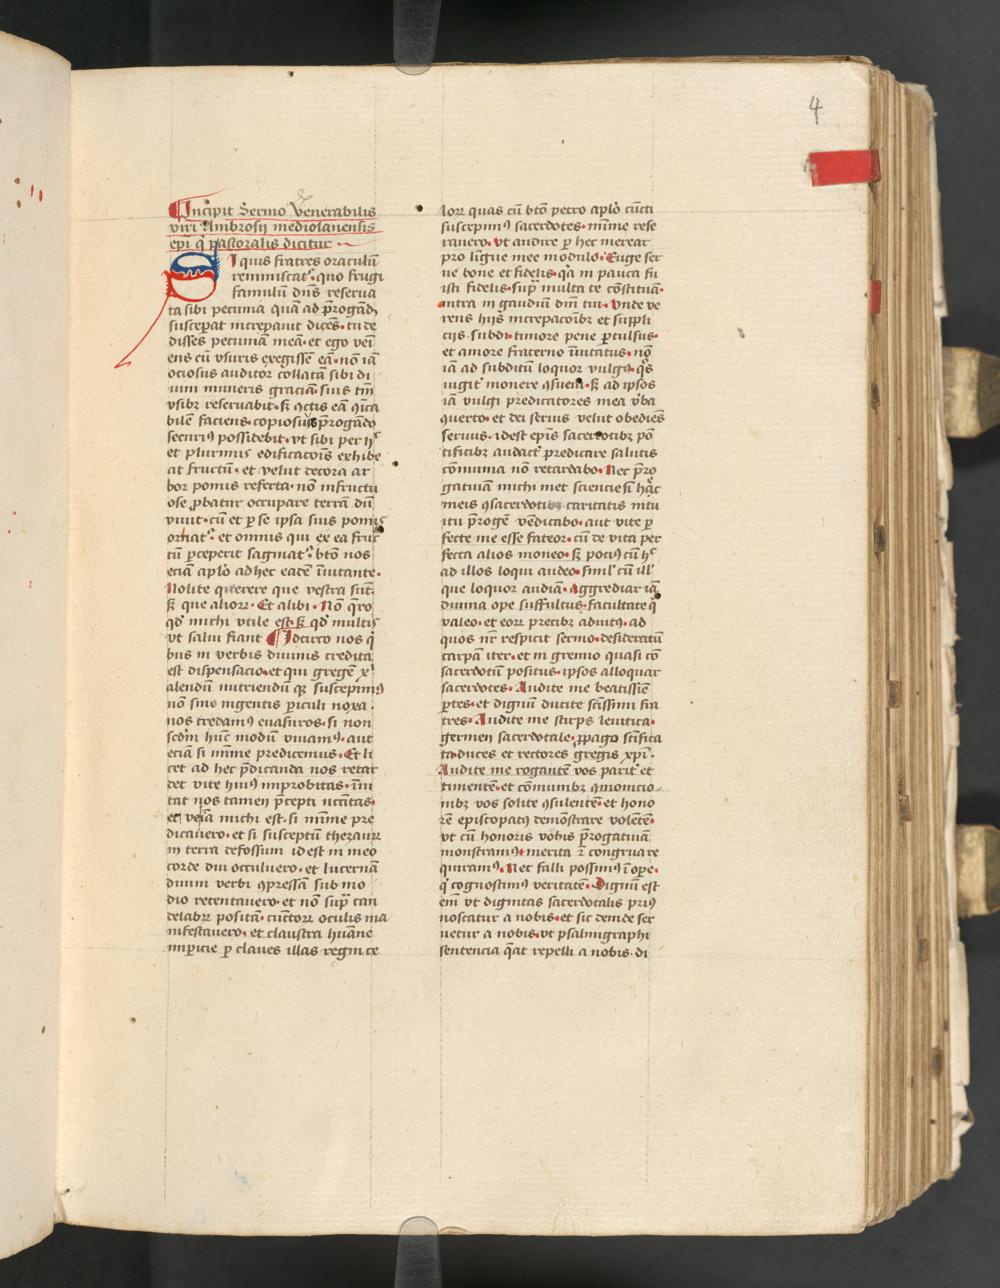 4
Incipit Sermo Venerabilis
viri Ambrosij mediolanensis
epi q pastoralis dicitur
Siquis fratres oraculū
reminiscat᷑ · quo frugi
famulū dn̄s reserua
ta sibi pecunia quā ad p̄rogand
susceperat increpauit dicēs · tu de
disses pecuniā meā · et ego veni
ens cū vsuris exegissē eā · nō iā
ociosus auditor collatā sibi di
uini muneris graciā suis tm̄
vsibꝫ reseruabit · sꝫ cūctis eā ꝯica
bilē faciens · copiosius p̄rogādo
securiꝰ possidebit · vt sibi per hͨ
et plurimis edificacōis exhibe
at fructū · et velut decora ar
bor pomis referta · nō infructu
ose ꝓbatur occupare terrā dū
viuit · cū et ꝑ se ipsa suis pomis
ornat᷑ · et omnis qui ex ea fruc
tū ꝑceperit saginat᷑ · btō nos
eciā aplō ad hec eadē īuitante ·
Nolite querere que vestra sūt
sꝫ que alioꝝ · Et alibi · Nō q̄ro
qd̓ michi vtile est · sꝫ qd̓ multis
vt salui fiant ¶ Idcirco nos q̇
bus in verbis diuinis credita
est dispensacio · et qui gregē xͥ
alendū nutriendū qꝫ suscepimꝰ
nō sine ingentis ꝑiculi noxa ·
nos credamꝰ euasuros · si non
scdm̄ hunc modū viuamꝰ · aut
eciā si mīme predicemus · Et li
cet ad hec p̄dicanda nos retar
det vite huiꝰ improbitas · īui
tat nos tamen p̄cepti nccītas ·
et ve iā michi est · si mīme pre
dicauero · et si susceptū thezaurꝝ
in terra defossum id est in meo
corde diu occuluero · et lucernā
diuini verbi ꝯpressā sub mo
dio retentauero · et nō suꝑ can
delabꝝ positā · cūctoꝝ oculis ma
nifestauero · et claustra hūane
imꝑicie ꝑ claues illas regni ce
loꝝ quas cū btō petro aplō cūcti
suscepimꝰ sacerdotes · mīme rese
rauero · vt audire ꝑ hec merear
pro ligue mee modulo · Euge ser
ue bone et fidelis · qꝛ in pauca fu
isti fidelis · suꝑ multa te cōstituā ·
intra in gaudiū dn̄i tui · Vnde ve
rens hijs increpacōibꝫ et suppli
cijs subdi · timore pene ꝑculsus ·
et amore fraterno īuitatus · nō
iā ad subditū loquor vulgꝰ · qͦs
iugit̓ monere ꝯsueui · sꝫ ad ipsos
iā vulgi predicatores mea v̓ba
ꝯuerto · et dei seruus velut obediēs
seruus · id est epīs sacerdotibꝫ pō
tificibꝫ audact̓ predicare salutis
cōmunia nō retardabo · Nec p̄ro
gatiuā michi met sciencie si hāc
meis ꝯsacerdotibꝫ caritatis intu
itu p̄rogē vēdicabo · aut vite ꝑ
fecte me esse fateor · cū de vita per
fecta alios moneo · sꝫ pociꝰ cū hͨ
ad illos loqui audeo · simꝉ cū illͥ
que loquor audiā · Aggrediar iā
diuina ope suffultus · facultate q̇
valeo · et eoꝝ precibꝫ adiutꝰ · ad
quos nr̄ respicit sermo · desideratū
carpā iter · et in gremio quasi cō
sacerdotū positus · ipsos alloquar
sacerdotes · Audite me beatissīe
ꝑtes · et dignū ducite scīssimi fra
tres · Audite me stirps leuitica ·
germen sacerdotale · ꝓpago scīfica
ta · duces et rectores gregis xp̄i ·
Audite me rogantē vos parit̓ et
timentē · et cōmunibꝫ ꝯuioncio
nibꝫ vos solite ꝯsulentē · et hono
rē episcopatꝰ demōstrare volētē ·
vt cū honoris vobis p̄rogatiuā
monstramꝰ · merita ꝛ congruare
quiramꝰ · Nec falli possimꝰ ī ope ·
q̇ cognoscimꝰ veritatē · Dignū est
em̄ vt dignitas sacerdotalis priꝰ
noscatur a nobis · et sic deinde ser
uetur a nobis · vt psalmigraphi
sentencia q̄at repelli a nobis · di